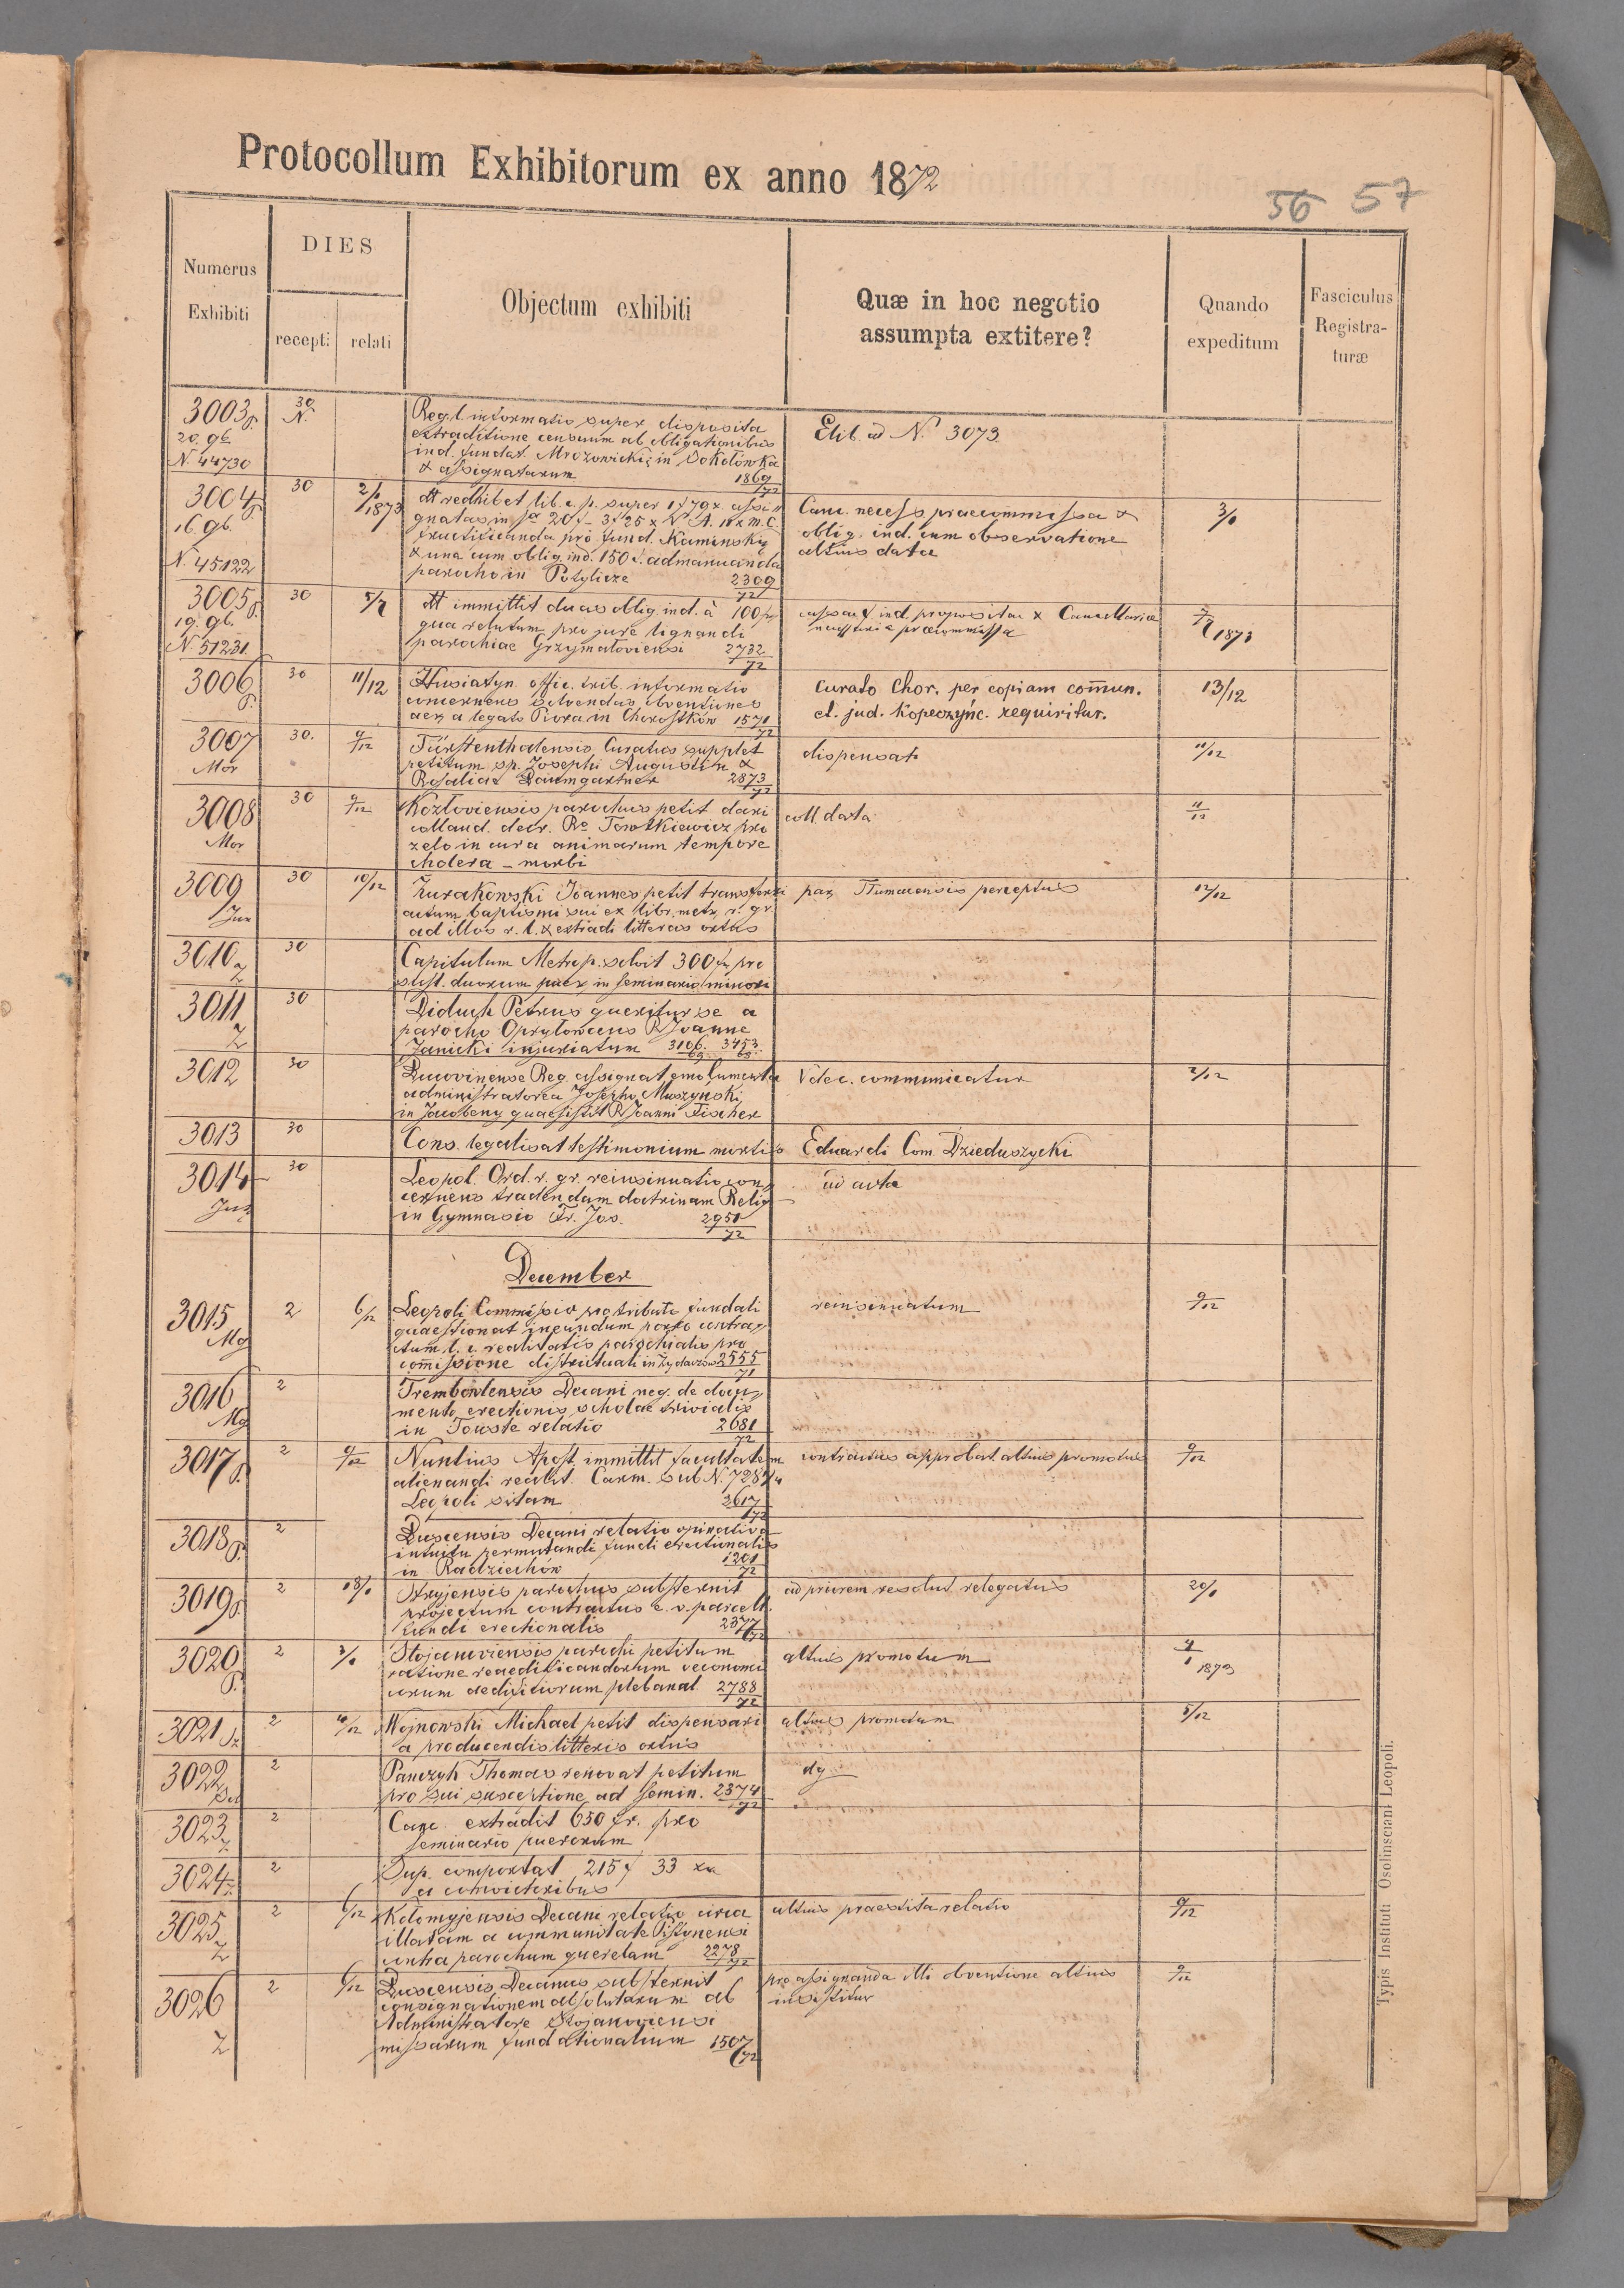 Protocollum Exhibitorum ex anno 1872
56 57
Numerus Exhibiti
DIES
recepti relati
Objectum exhibiti
Quæ in hoc negotio assumpta extitere?
Quando expeditum
Fasciculus Registra-turæ
3003 30 N. Reg. l. informatio super disposita
20. 9b. extraditione censuum ab obligationibus
N. 44730 ind. fundat. Mrozowicki in Sokołówka
& assignatarum 1869/72
Elib. ad N. 3073
3004 30 2/1 1873 dtt redhibet lib. c. p. super 1 f 79 x assi
16. 9b. gnatas in
N. 45122 fructificanda pro fund. Kaminsky
& una cum oblig. ind. 150 f. admanuanda
parocho in Potylicze 2309/72
Canc. necess praecommissa &
oblig. ind. cum observatione
altius data
3/1
3005 30 5/7 dtt immittit duas oblig. ind. à 100 f
19. 9b. qua relutum pro jure lignandi
N. 51231 parochiae Grzymałoviensi 2732/72
ind. propositae & Cancellariae
necessaria praecommissa
1873
3006 30 11/12 Husiatyn. offic. trib. informatio
concernens solvendas obventiones
a legato Piora in Chorostków 1571/72
Curato Chor. per copiam commun.
et jud. Kopeczyńc. requiritur.
13/12
3007 30. 9/12 Fürstenthalensis Curatus supplet
Mor petitum sp. Josephi Augustin &
Rosaliae Baumgartner 2873/72
dispensat.
11/12
3008 30 9/12 Kozłoviensis parochus petit dari
Mor colland. decr. Ro Towtkiewicz pro
zelo in cura animarum tempore
cholera - morbi
coll. data
11/12
3009 30 10/12 Żurakowski Joannes petit transferri
Jur actum baptismi sui ex libr. metr. r. gr.
ad illos r. l. & extradi litteras ortus
par. Tłumacensis perceptus
12/12
3010 30 Capitulum Metrop. solvit 300 f pro
Z sust. duorum puer. in seminario minori
3011 30 Diduch Petrus queritur se a
Z parocho Opryłowcens R Joanne
Janicki injuriatum 3106/69 3453/69
3012 30 Bucovinense Reg. assignat emolumenta
administratorea Josepho Muszynski
in Jacobeny quaesisit R Joanni Fischer
V dec. communicatur
2/12
3013 30 Cons. legalisat testimonium mortis Eduardi Com. Dzieduszycki
3014 30 Leopol. Ord. r. gr. reinsinuatio con-
Jur cernens tradendam doctrinam Relig
in Gymnasio Fr. Jos. 2951/72
ad acta
December
3015 2 6/12 Leopoli Commissio pro tributi fundali
Mg quaestionat ineundum porro contra-
ctum l. c. realitatis parochialis pro
commissione districtuali in Żydaczów 2555/71
reinsinuatum
9/12
3016 2 Trembowlensis Decani neg. de docu-
Mg mento erectionis scholae trivialis
in Touste relatio 2681/72
3017 2 9/12 Nuntius Apost. immittit facultatem
alienandi realit. Carm. sub N. 728 2/4
Leopoli sitam 2617/72
contractus approbat. altius promotus
9/12
3018 2 Buscensis Decani relatio opinativa
intuitu permutandi fundi erectionalis
in Radziechów 1201/72
3019 2 18/1 Stryjensis parochus substernit
projectum contractus e. v. parcell.
fundi erectionalis 2377/72
ad priorem resolut. relegatus
20/1
3020 2 3/1 Stojanoviensis parochi petitum
ratione reaedificandorum oeconomi
corum aedificiorum plebanal. 2788/72
altius promotum
4/1 1873
3021 2 4/12 Wojnowski Michael petit dispensari
a producendis litteris ortus
altius promotum
5/12
3022 2 Panczyk Thomas renovat petitum
pro sui susceptione ad Semin. 2374/72
3023 2 Canc. extradit 650 fr. pro
seminario puerorum
3024 2 Sup. comportat 215 f 33 xr
a convictoribus
3025 2 6/12 Kołomyjensis Decani relatio circa
Z illatam a communitate Pistynensi
contra parochum querelam 2278/72
altius praestita relatio
9/12
3026 2 6/12 Buscensis Decanus substernit
Z consignationem absolutarum ab
Administratore Stojanoviensi
missarum fundationalium 1507/72
pro assignanda illi obventione altius
insistitur
9/12
Typis Instituti Ossolinsciani Leopoli.